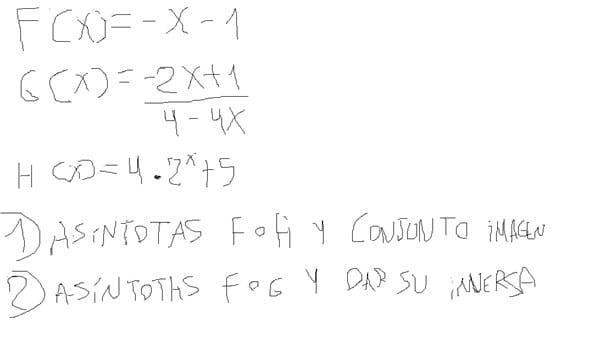 F(X)=-X-1
G(X)=-2X+1
4-4X
H(X)=4.2^x+5
1) ASINTOTAS FoH Y CONJUNTO IMAGEN
2) ASÍNTOTAS FoG Y DAR SU INVERSA